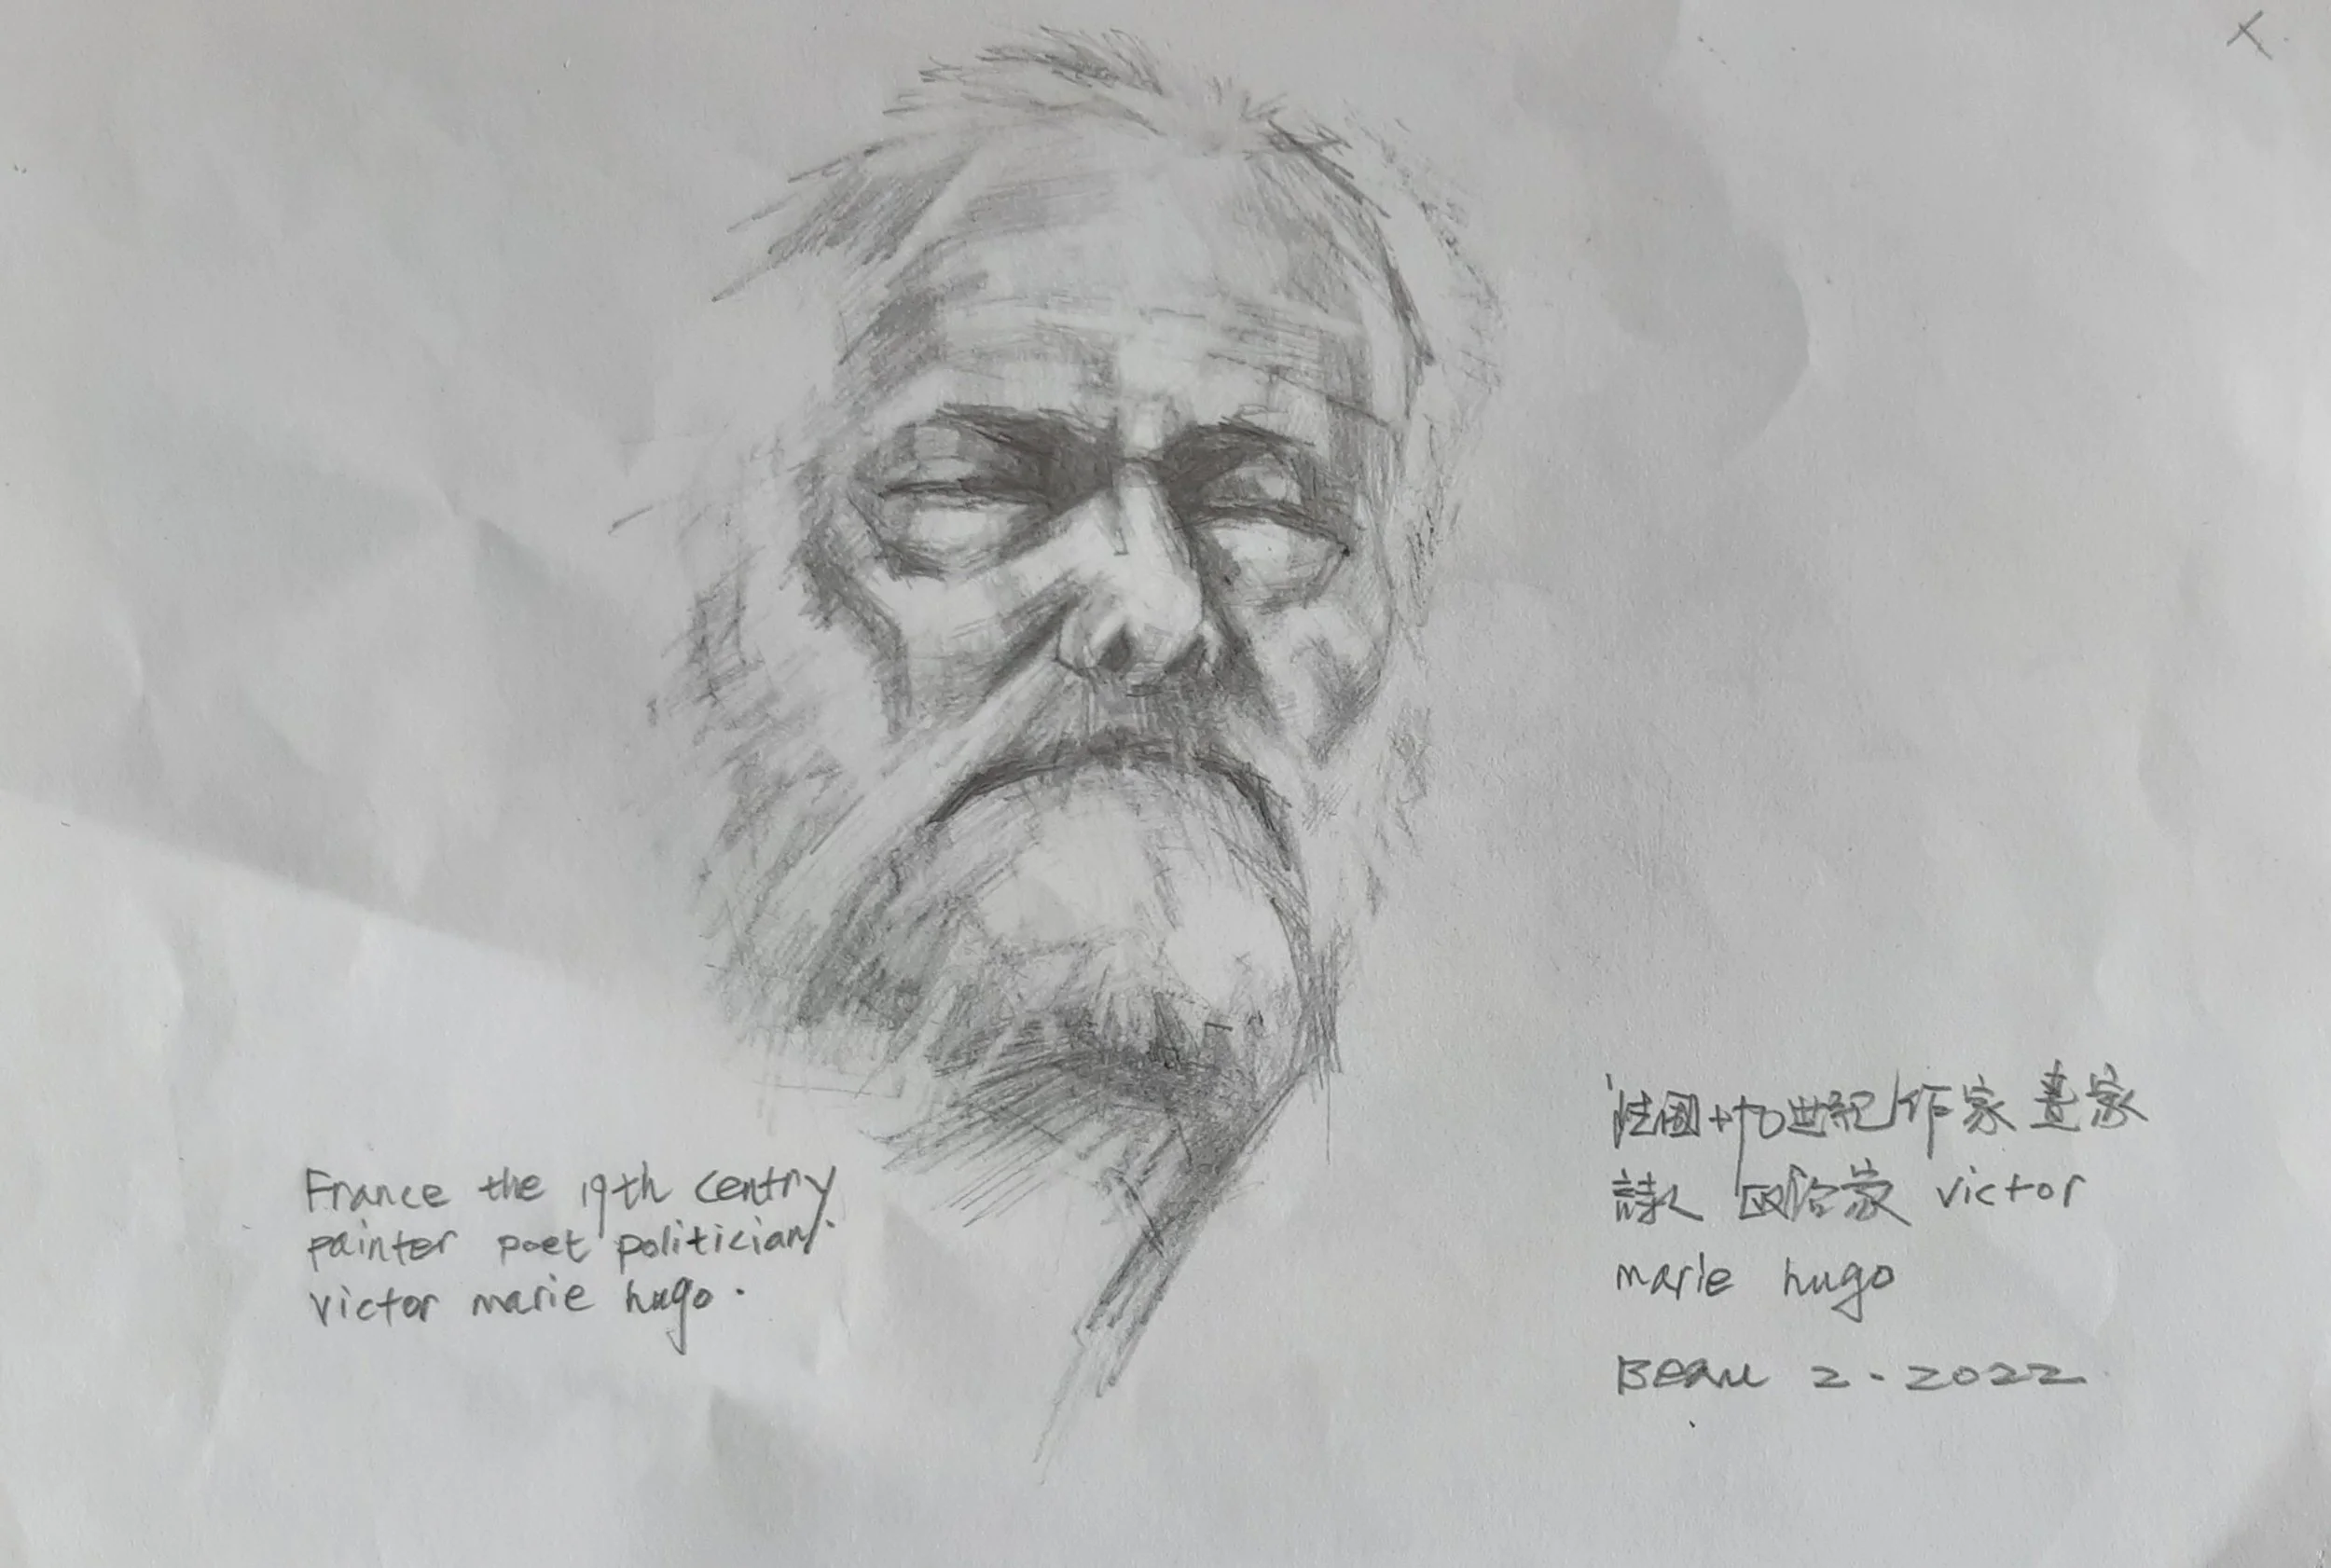 France the 19th centry
painter poet politician.
victor marie hugo.
法國十九世紀作家畫家
詩人 政治家 victor
marie hugo
Beau 2.2022